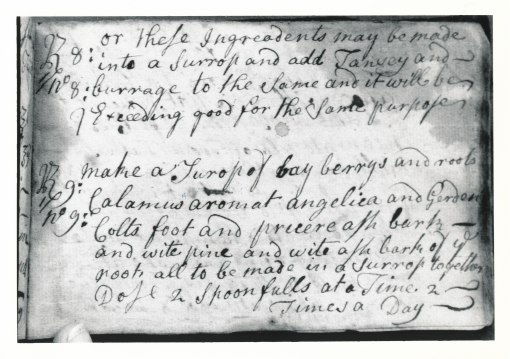 ℞ 8: or these Ingreadents may be made
into a Surrop and add Tansey and
No 8: burrage to the Same and it will be
Exceding good for the Same purpose
℞ 9: make a Surop of bay berrys and roots
Calamus aromat angelica and Gerden
No 9: Colts foot and ash bark
and wite pine and wite ash bark of ye
roots all to be made in a Surrop together
Dose 2 Spoonfulls at a Time 2
Times a Day